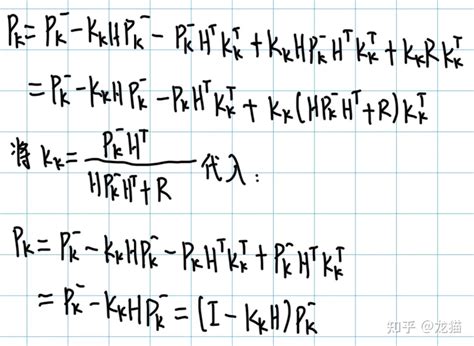 P_k = P_k^- - K_k H P_k^- - P_k^- H^T K_k^T + K_k H P_k^- H^T K_k^T + K_k R K_k^T
= P_k^- - K_k H P_k^- - P_k^- H^T K_k^T + K_k (H P_k^- H^T + R) K_k^T
将 K_k = P_k^- H^T / (H P_k^- H^T + R) 代入:
P_k = P_k^- - K_k H P_k^- - P_k^- H^T K_k^T + P_k^- H^T K_k^T
= P_k^- - K_k H P_k^- = (I - K_k H) P_k^-
知乎 @龙猫